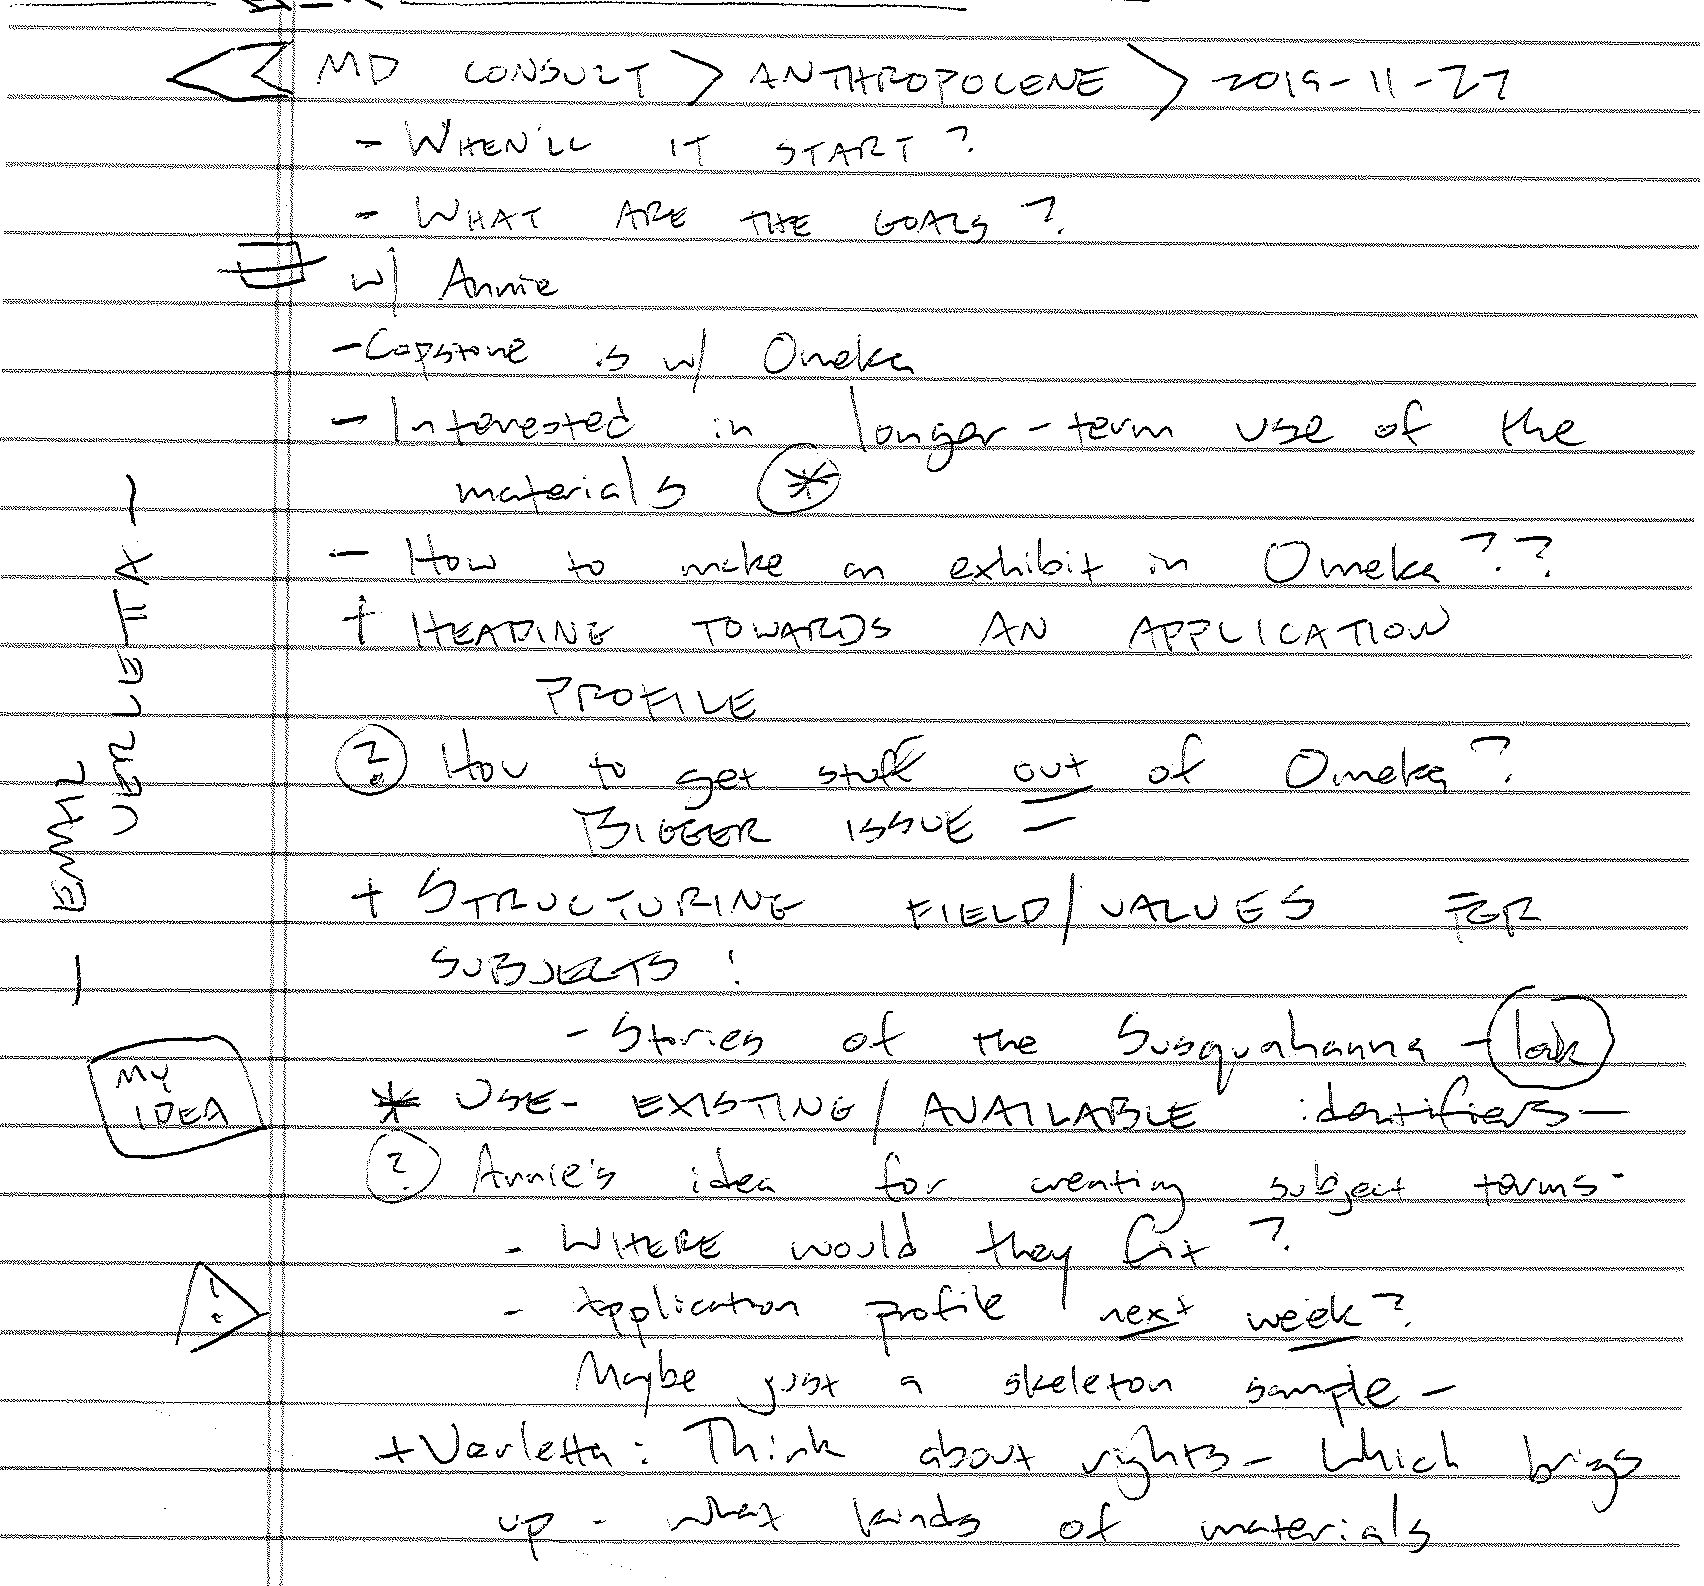 MD CONSULT > ANTHROPOCENE > 2019-11-27
- WHEN'LL IT START?
- WHAT ARE THE GOALS?
w/ Annie
- Capstone is w/ Omeka
- Interested in longer-term use of the
materials *
- How to make an exhibit in Omeka??
+ HEADING TOWARDS AN APPLICATION
PROFILE
? How to get stuff out of Omeka?
BIGGER ISSUE -
+ STRUCTURING FIELD/VALUES FOR
SUBJECTS!
- Stories of the Susquahanna - look
MY
IDEA
* USE - EXISTING/AVAILABLE identifiers -
? Annie's idea for creating subject terms -
- WHERE would they fit?
! - Application profile next week?
Maybe just a skeleton sample -
+ Verletta: Think about rights - which brings
up - what kinds of materials
- EMAIL
VERLETTA -